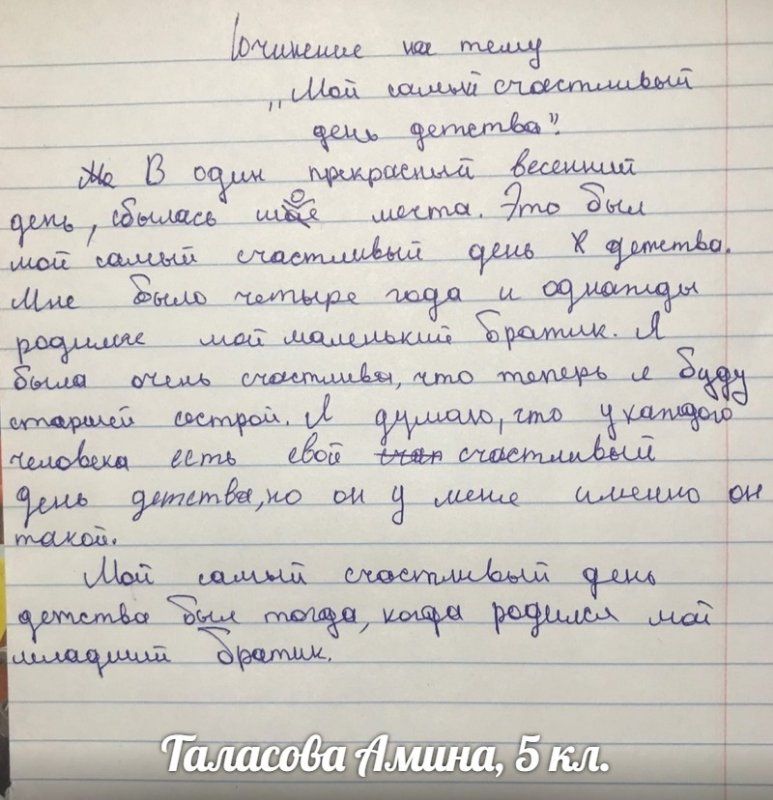 Сочинение на тему
„Мой самый счастливый
день детства”.
В один прекрасный весенний
день, сбылась моя мечта. Это был
мой самый счастливый день детства.
Мне было четыре года и однажды
родился мой маленький братик. Я
была очень счастлива, что теперь я буду
старшей сестрой. Я думаю, что у каждого
человека есть свой счастливый
день детства, но он у меня именно он
такой.
Мой самый счастливый день
детства был тогда, когда родился мой
младший братик.
Таласова Амина, 5 кл.